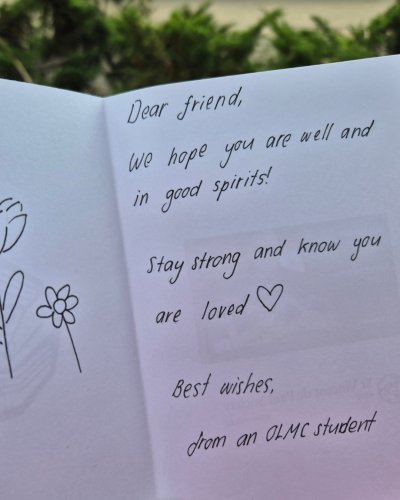 Dear friend,
We hope you are well and
in good spirits!
Stay strong and know you
are loved ♡
Best wishes,
from an OLMC student